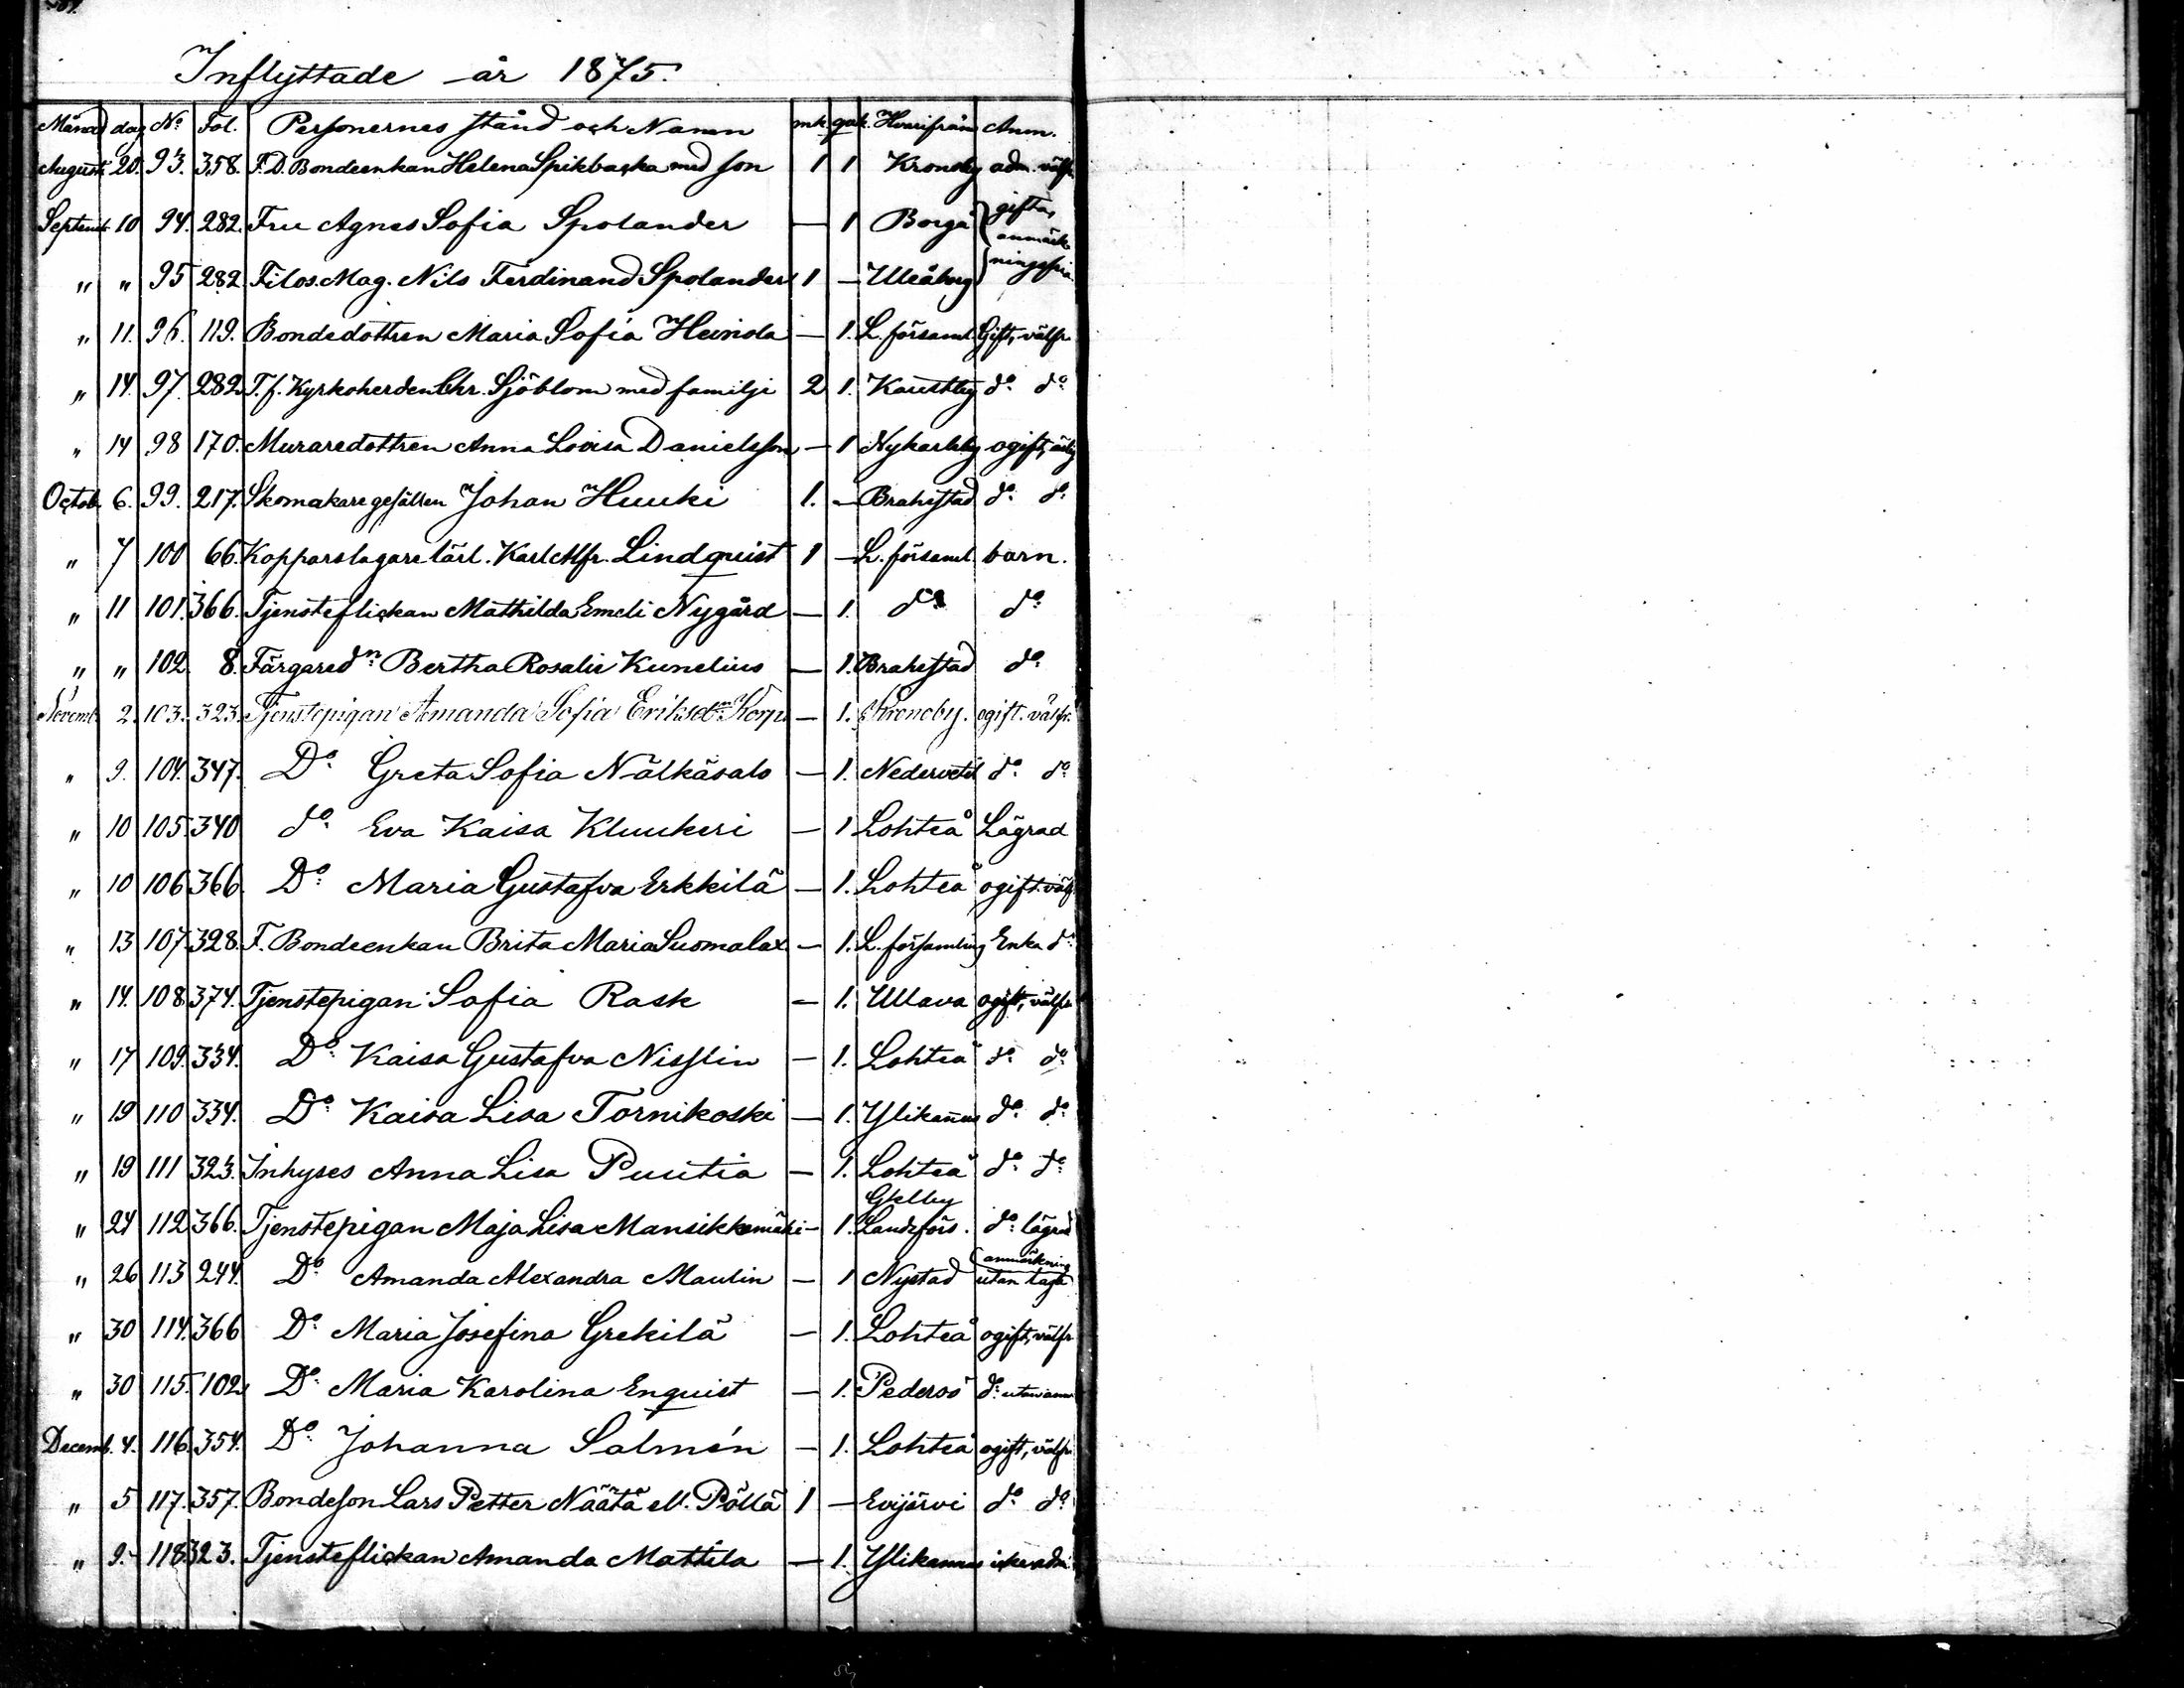 Inflyttade år 1875.
Månad dag No Fol. Personernes stånd och Namn mk. qvk. Hvarifrån Anm.
August 20. 93. 358. F. D. Bondeenkan Helena Spikbacka med son 1 1 Kronoby adm. välfr.
Septemb. 10 94. 282. Fru Agnes Sofia Spolander — 1 Borgå gifta, anmärk
" " 95 282. Filos. Mag. Nils Ferdinand Spolander 1 — Uleåborg ningsfria
" 11. 96. 119. Bondedottren Maria Sofia Heinola — 1. L. församl. Gift, välfr.
" 14. 97. 282. T. f. Kyrkoherden Chr. Sjöblom med familje 2 1. Kaustby do do
" 14 98 170. Muraredottren Anna Lovisa Danielsson — 1 Nykarleby ogift,
Octob. 6. 99. 217. Skomakaregesällen Johan Huuki 1. — Brahestad do do
" 7 100 66. Kopparslagarelärl. Karl Alfr. Lindquist 1 — L. församl. barn.
" 11 101. 366. Tjensteflickan Mathilda Emeli Nygård — 1. do do
" " 102. 8. Färgaredn Bertha Rosalie Kunelius — 1. Brahestad do
Novemb. 2. 103. 323. Tjenstepigan Amanda Sofia Eriksdn Korp — 1. Kronoby. ogift. välfr.
" 9. 104. 347. Do Greta Sofia Nälkäsalo — 1. Nedervetil do do
" 10 105. 340 do Eva Kaisa Kluukeri — 1 Lohteå Lägrad
" 10 106 366. Do Maria Gustafva Erkkilä — 1. Lohteå ogift. välfr.
" 13 107. 328. F. Bondeenkan Brita Maria Suomalax — 1. L. församling Enka do
" 14. 108. 374. Tjenstepigan Sofia Rask — 1. Ullava ogift, välfr.
" 17 109. 334. Do Kaisa Gustafva Nisslin — 1. Lohteå do do
" 19 110 334. Do Kaisa Lisa Tornikoski — 1. Ylikannus do do
" 19 111 323. Inhyses Anna Lisa Puutia — 1. Lohteå do do
" 24 112 366. Tjenstepigan Maja Lisa Mansikkamäki — 1. Gkelby Landsförs. do lägrad
" 26 113 244. Do Amanda Alexandra Maulin — 1 Nystad anmärkning utan laga
" 30 114. 366 Do Maria Josefina Grekilä — 1. Lohteå ogift, välfr.
" 30 115. 102. Do Maria Karolina Enquist — 1. Pedersö do utan anm
Decemb. 4. 116. 354. Do Johanna Salmén — 1. Lohteå ogift, välfr.
" 5 117. 357. Bondeson Lars Petter Näätä ell. Pöllä 1 — Evijärvi do do
" 9. 118. 323. Tjensteflickan Amanda Mattila — 1. Ylikannus icke adm.